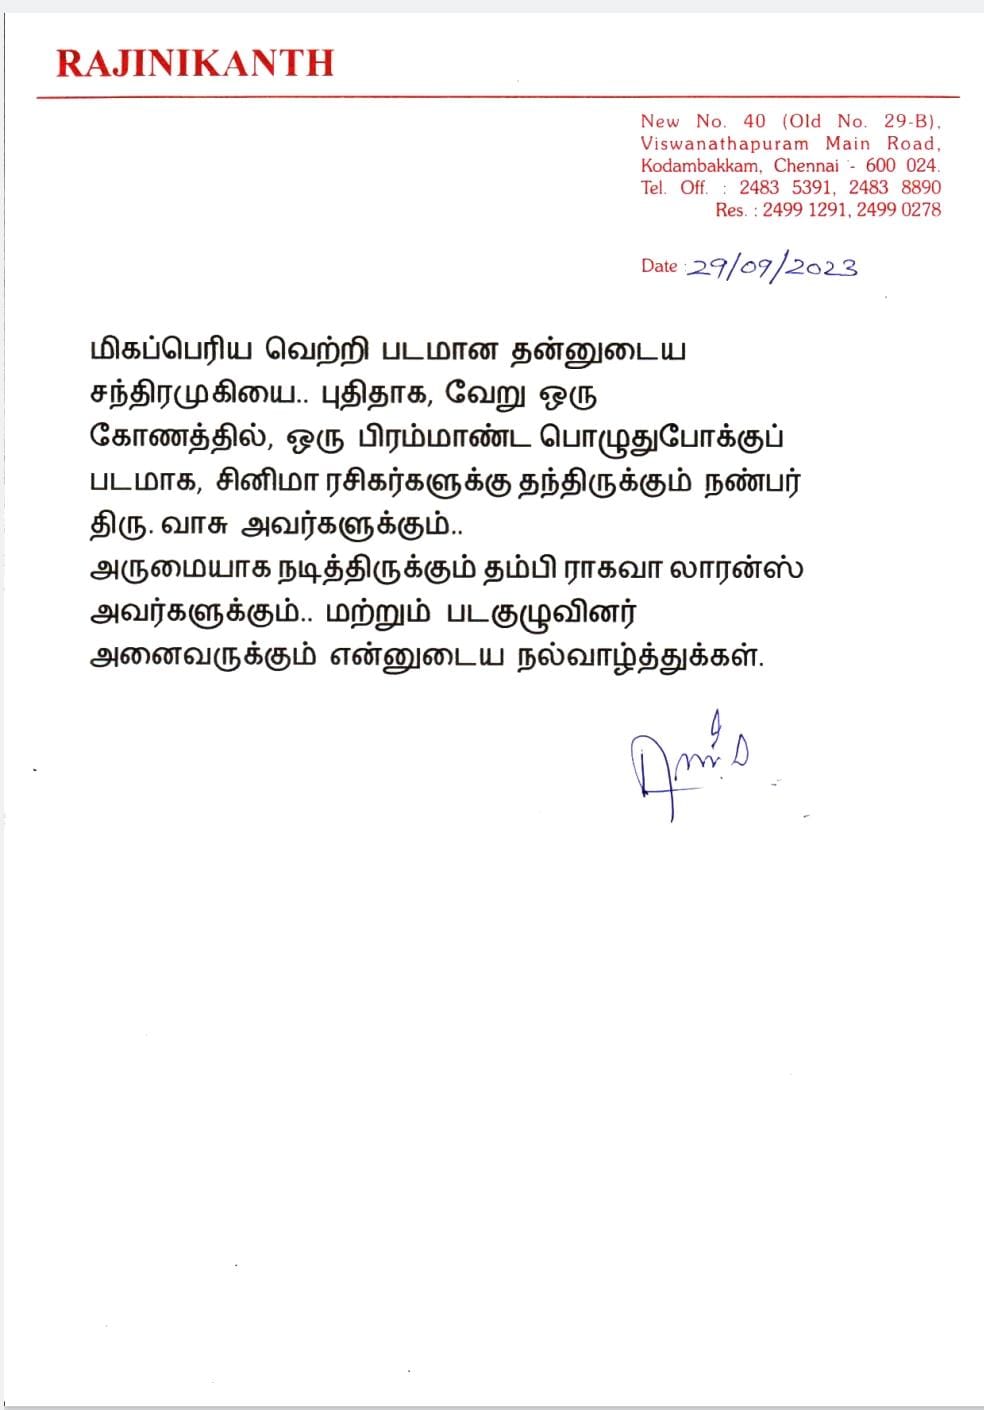 RAJINIKANTH
New No. 40 (Old No. 29-B),
Viswanathapuram Main Road,
Kodambakkam, Chennai - 600 024.
Tel. Off. : 2483 5391, 2483 8890
Res. : 2499 1291, 2499 0278
Date : 29/09/2023
மிகப்பெரிய வெற்றி படமான தன்னுடைய
சந்திரமுகியை.. புதிதாக, வேறு ஒரு
கோணத்தில், ஒரு பிரம்மாண்ட பொழுதுபோக்குப்
படமாக, சினிமா ரசிகர்களுக்கு தந்திருக்கும் நண்பர்
திரு. வாசு அவர்களுக்கும்..
அருமையாக நடித்திருக்கும் தம்பி ராகவா லாரன்ஸ்
அவர்களுக்கும்.. மற்றும் படகுழுவினர்
அனைவருக்கும் என்னுடைய நல்வாழ்த்துக்கள்.